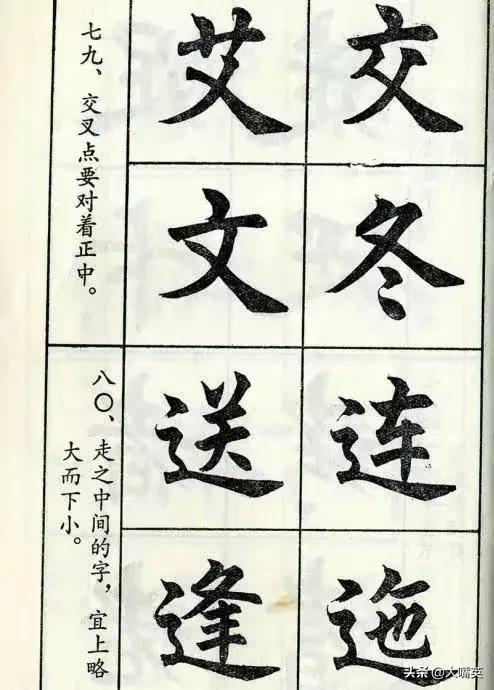 交
冬
艾
文
七九、交叉点要对着正中。
连
迤
送
逢
八〇、走之中间的字，宜上略
大而下小。
头条 @大嘴英